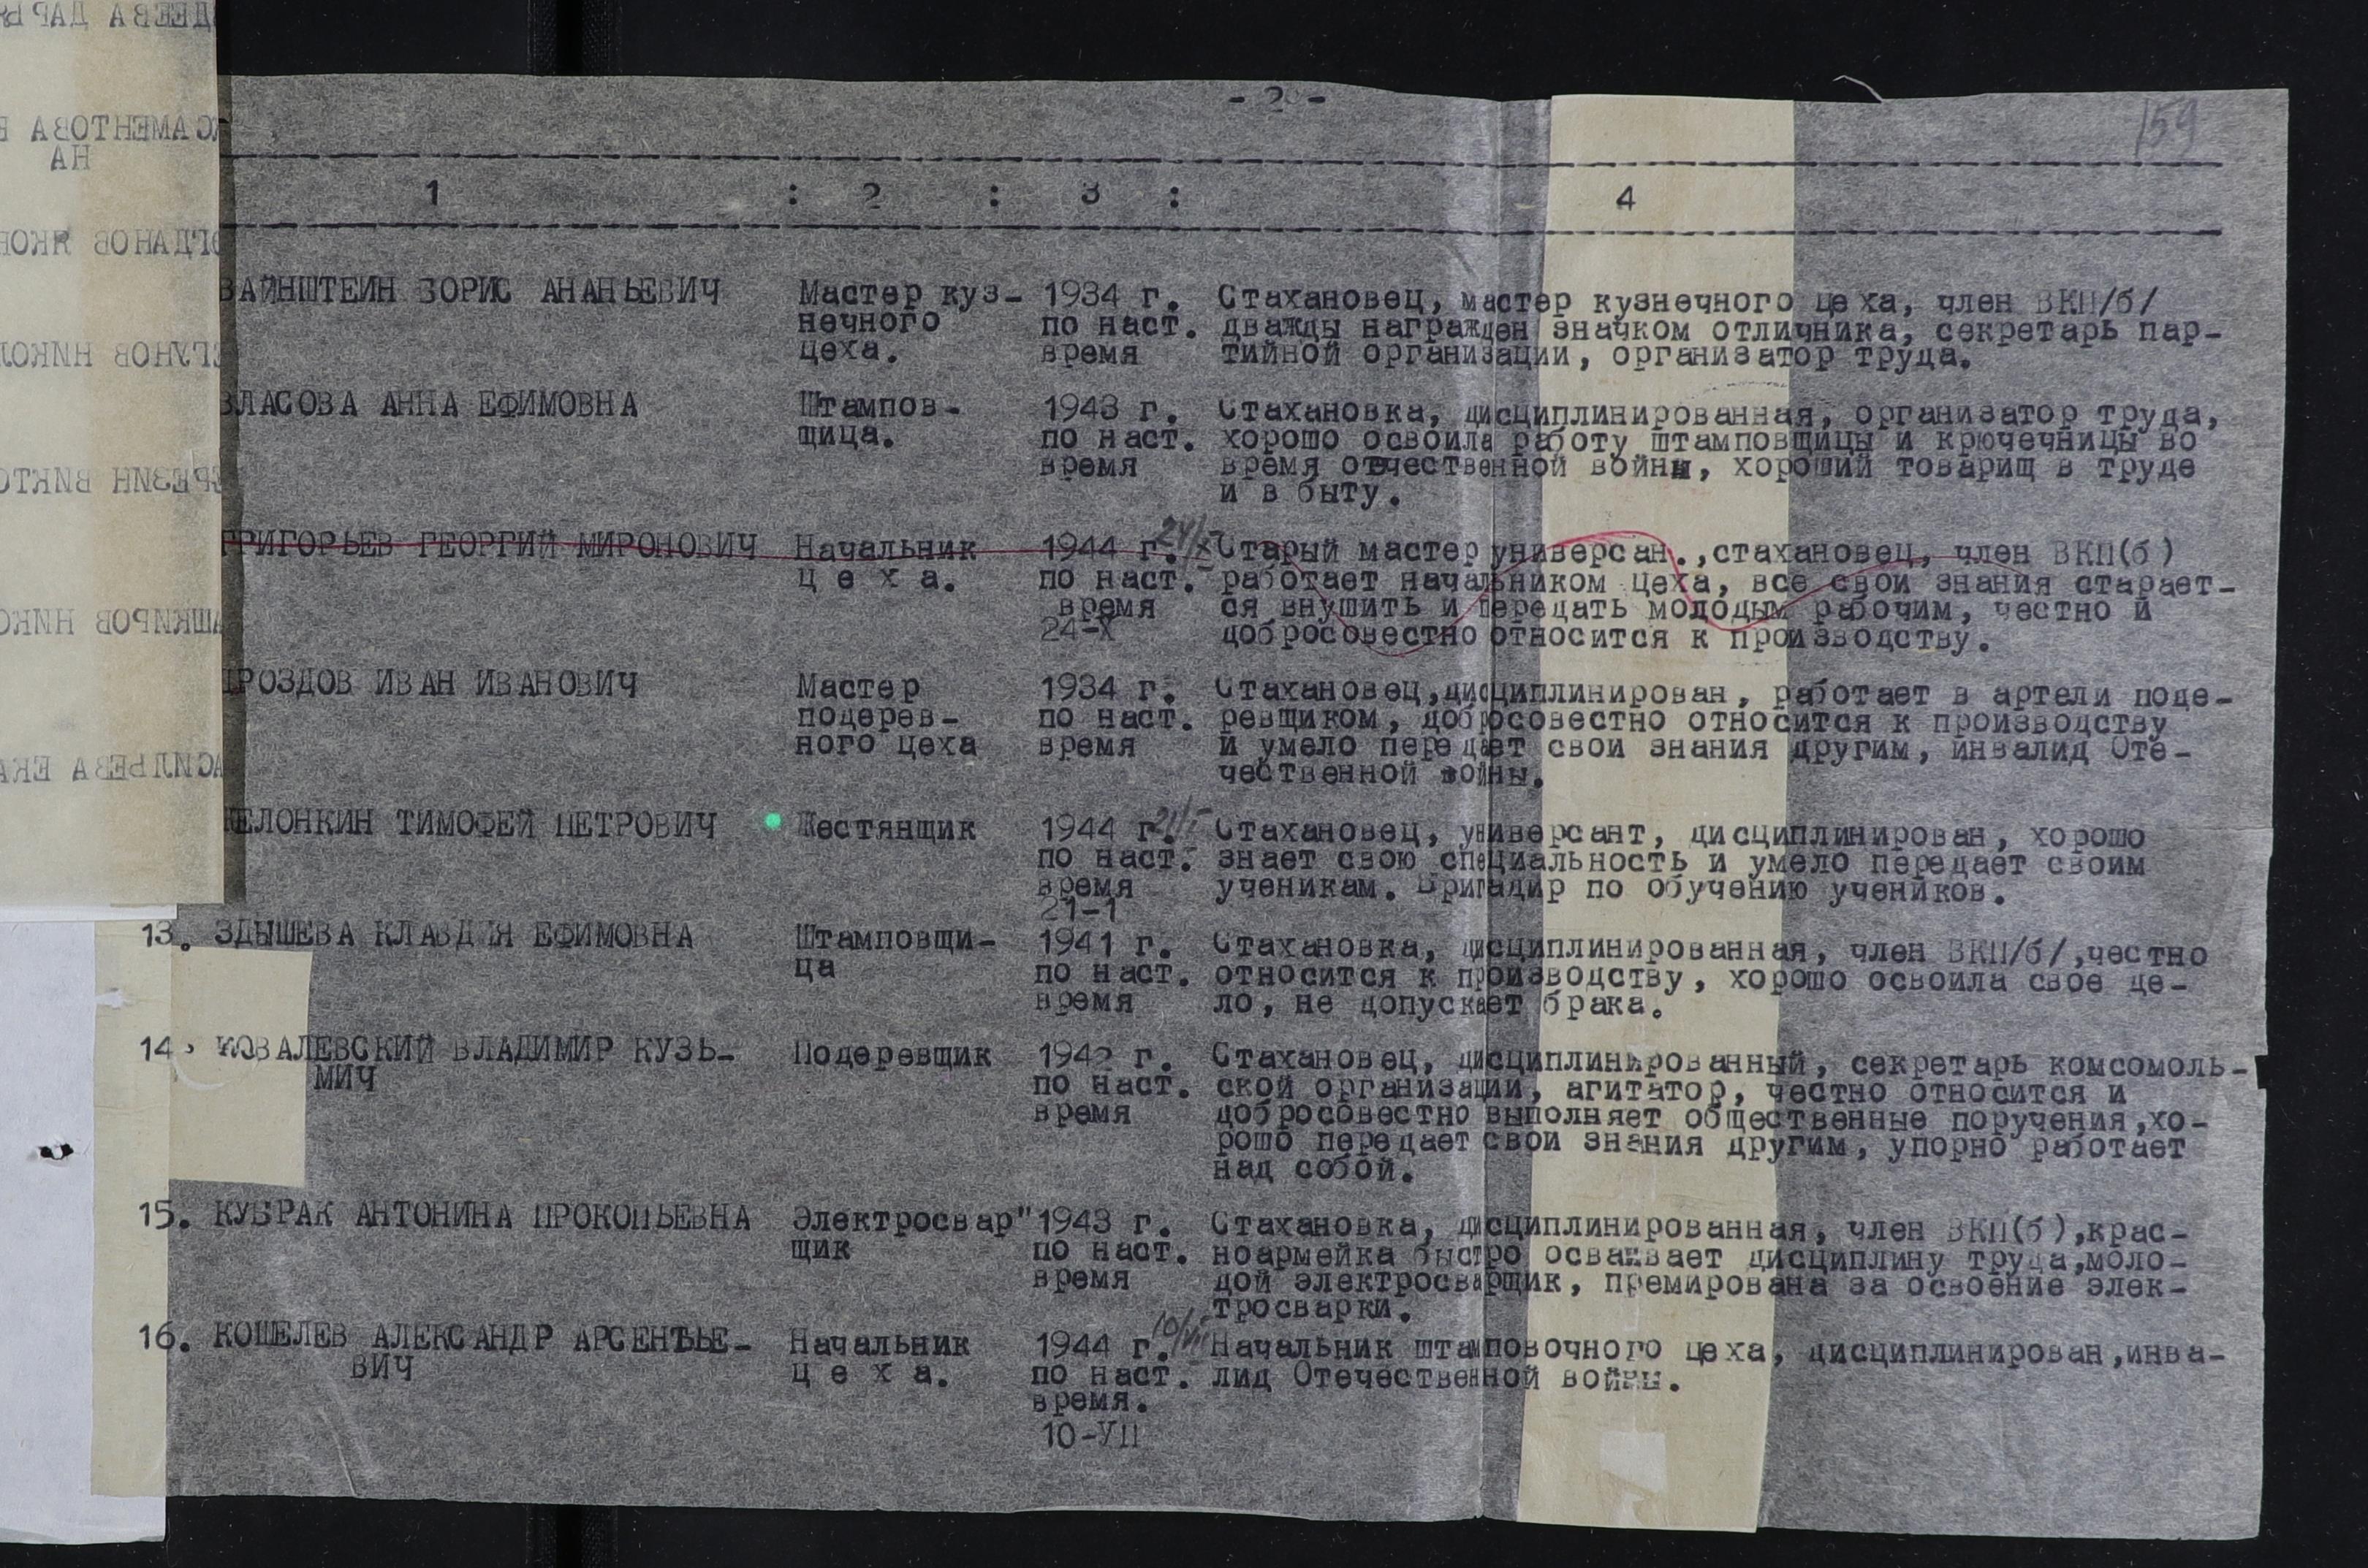 - 2 -
159
1 : 2 : 3 : 4
ВАЙНШТЕИН БОРИС АНАНЬЕВИЧ Мастер куз- 1934 г. Стахановец, мастер кузнечного цеха, член ВКП/б/
нечного по наст. дважды награжден значком отличника, секретарь пар-
цеха. время тийной организации, организатор труда.
ВЛАСОВА АННА ЕФИМОВНА Штампов- 1943 г. Стахановка, дисциплинированная, организатор труда,
щица. по наст. хорошо освоила работу штамповщицы и крючечницы во
время время отечественной войны, хороший товарищ в труде
и в быту.
ГРИГОРЬЕВ ГЕОРГИЙ МИРОНОВИЧ Начальник 1944 г. 24/X Старый мастер универсан., стахановец, член ВКП(б)
ц е х а. по наст. работает начальником цеха, все свои знания старает-
время ся внушить и передать молодым рабочим, честно и
24-X добросовестно относится к производству.
ДРОЗДОВ ИВАН ИВАНОВИЧ Мастер 1934 г. Стахановец, дисциплинирован, работает в артели поде-
подерев- по наст. ревщиком, добросовестно относится к производству
ного цеха время и умело передает свои знания другим, инвалид Оте-
чественной войны.
ЖЕЛОНКИН ТИМОФЕЙ ПЕТРОВИЧ Жестянщик 1944 г. 21/I Стахановец, универсант, дисциплинирован, хорошо
по наст. знает свою специальность и умело передает своим
время ученикам. Бригадир по обучению учеников.
21-1
13. ЗДЫШЕВА КЛАВДИЯ ЕФИМОВНА Штамповщи- 1941 г. Стахановка, дисциплинированная, член ВКП/б/, честно
ца по наст. относится к производству, хорошо освоила свое де-
время ло, не допускает брака.
14. КОВАЛЕВСКИЙ ВЛАДИМИР КУЗЬ- Подеревщик 1942 г. Стахановец, дисциплинированный, секретарь комсомоль-
МИЧ по наст. ской организации, агитатор, честно относится и
время добросовестно выполняет общественные поручения, хо-
рошо передает свои знания другим, упорно работает
над собой.
15. КУБРАК АНТОНИНА ПРОКОПЬЕВНА Электросвар" 1943 г. Стахановка, дисциплинированная, член ВКП(б), крас-
щик по наст. ноармейка быстро осваивает дисциплину труда, моло-
время дой электросварщик, премирована за освоение элек-
тросварки.
16. КОШЕЛЕВ АЛЕКСАНДР АРСЕНТЬЕ- Начальник 1944 г. 10/VII Начальник штамповочного цеха, дисциплинирован, инва-
ВИЧ ц е х а. по наст. лид Отечественной войны.
время.
10-УП